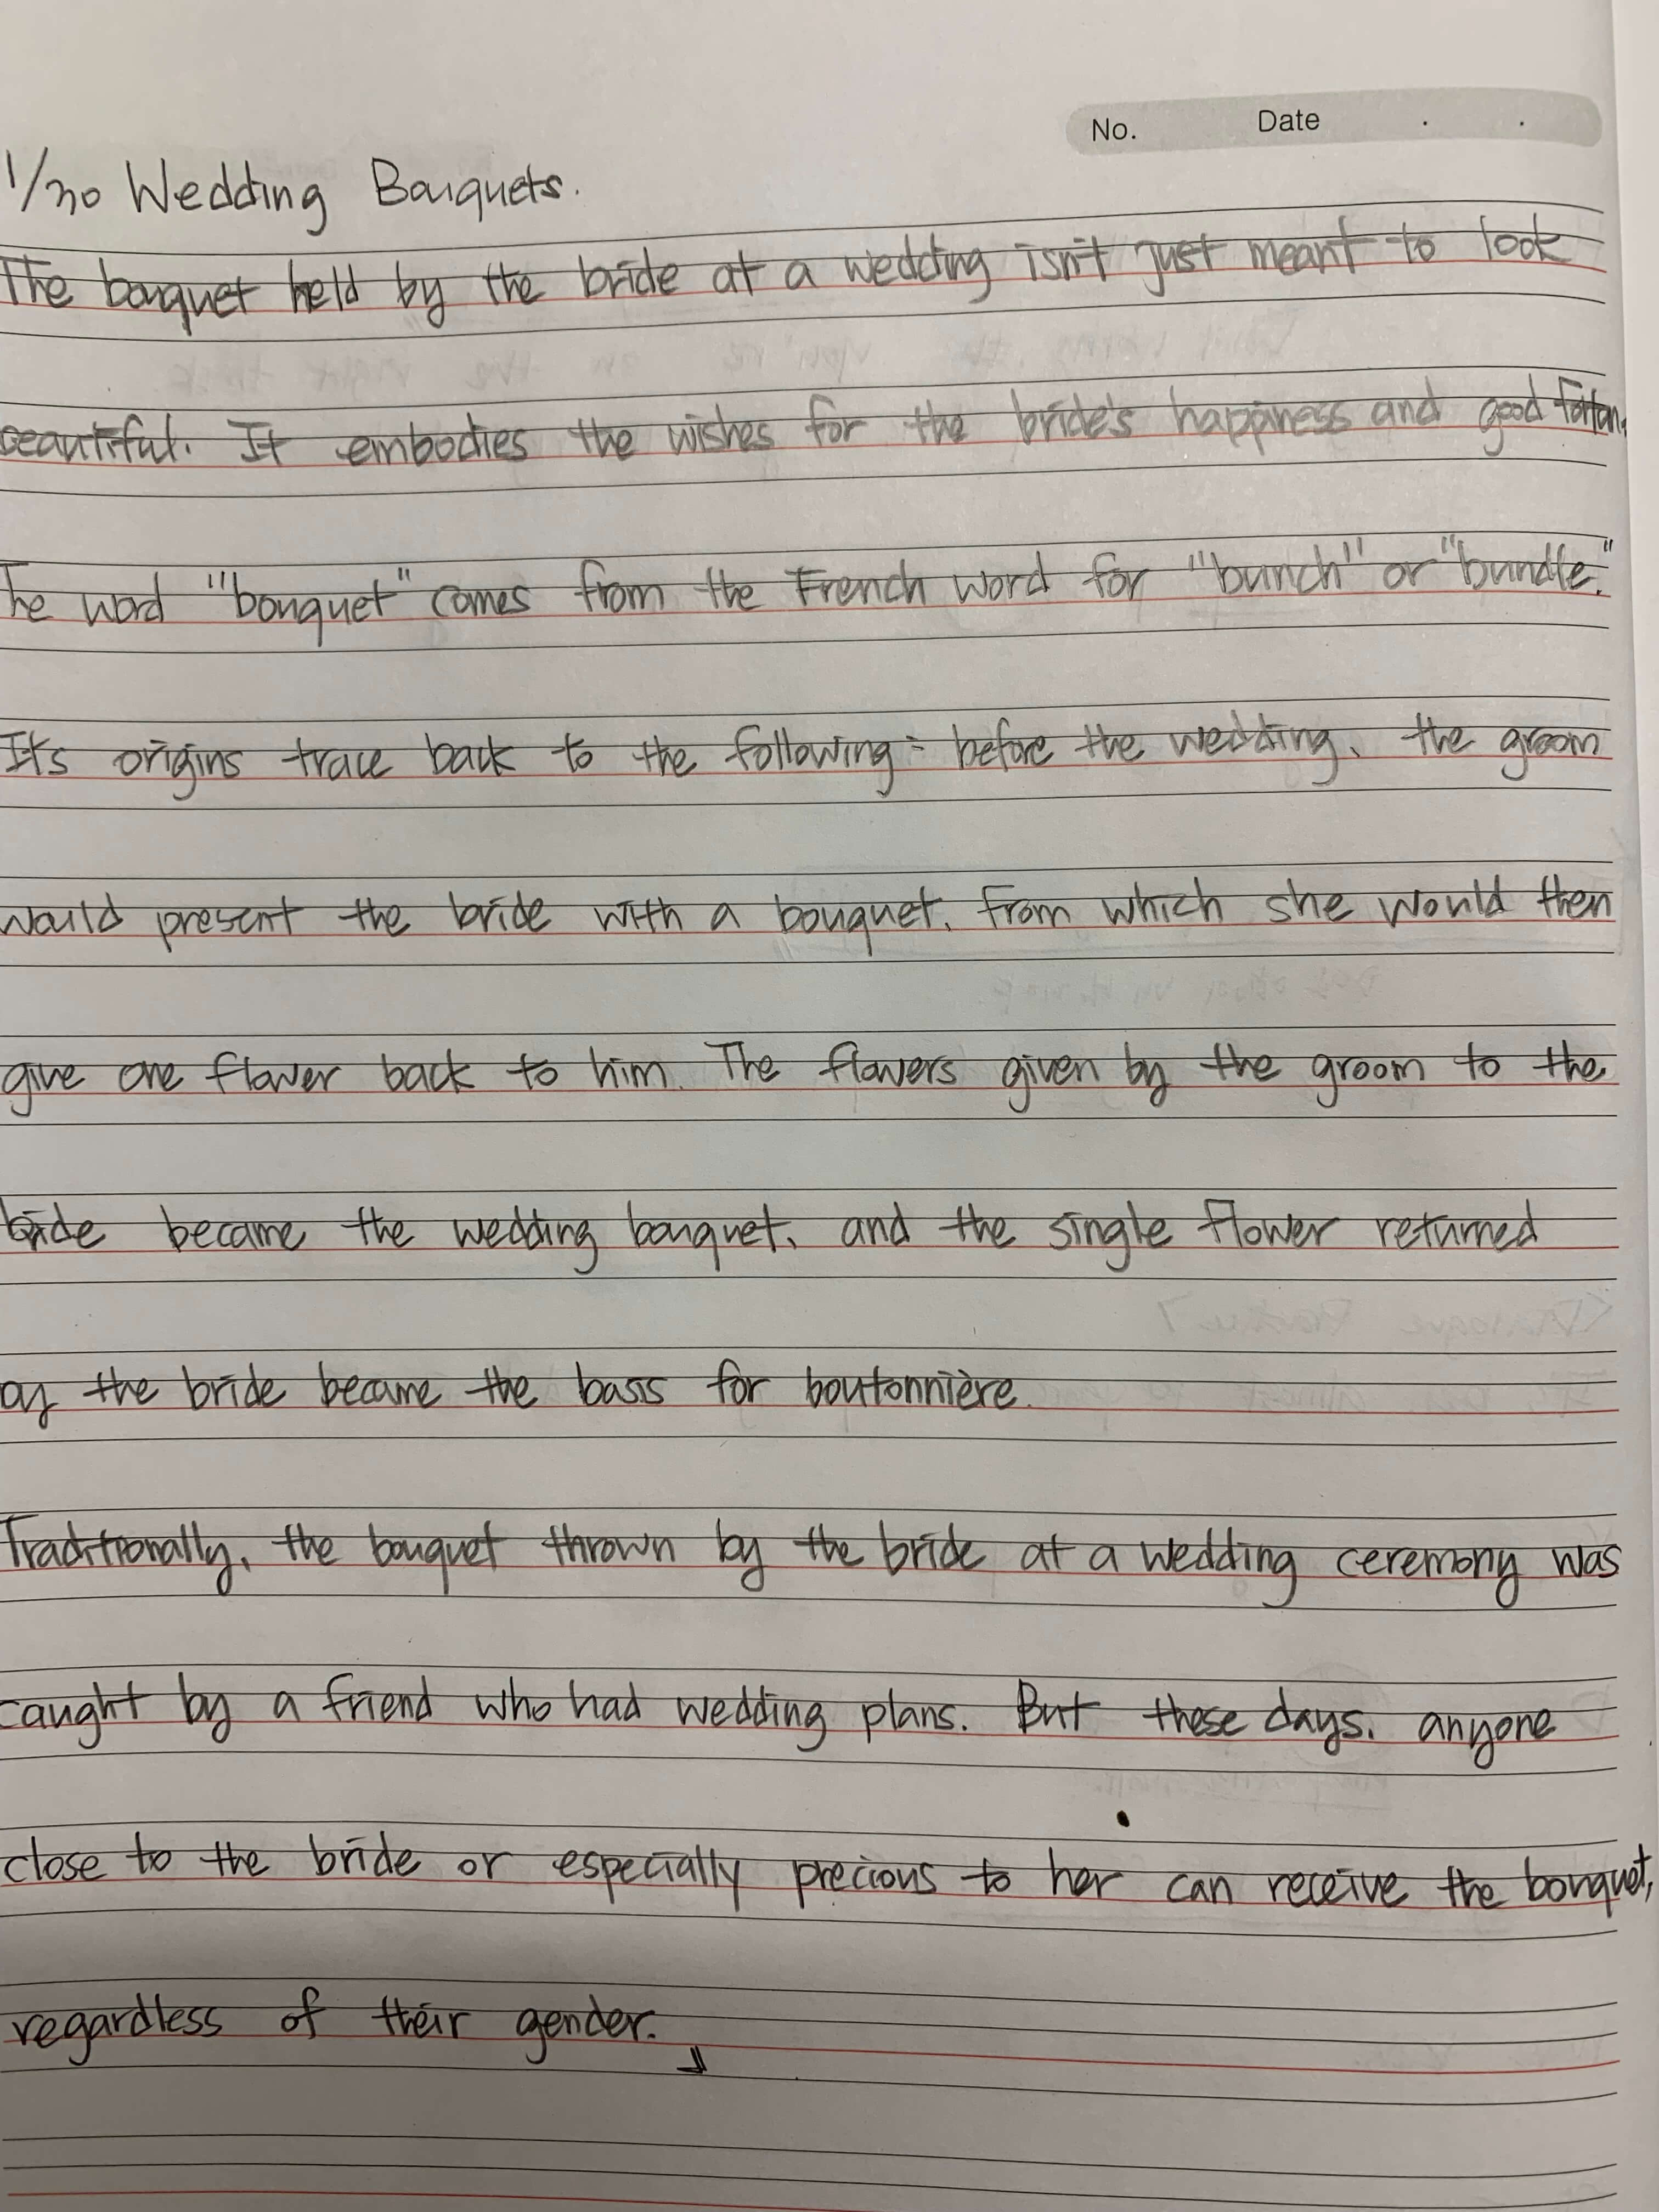 No. Date . .
1/30 Wedding Bouquets.
The bouquet held by the bride at a wedding isn't just meant to look
beautiful. It embodies the wishes for the bride's happiness and good
The word "bouquet" comes from the French word for "bunch" or "bundle."
Its origins trace back to the following: before the wedding, the groom
would present the bride with a bouquet, from which she would then
give one flower back to him. The flowers given by the groom to the
bride became the wedding bouquet, and the single flower returned
by the bride became the basis for boutonnière.
Traditionally, the bouquet thrown by the bride at a wedding ceremony was
caught by a friend who had wedding plans. But these days, anyone
close to the bride or especially precious to her can receive the bouquet,
regardless of their gender.